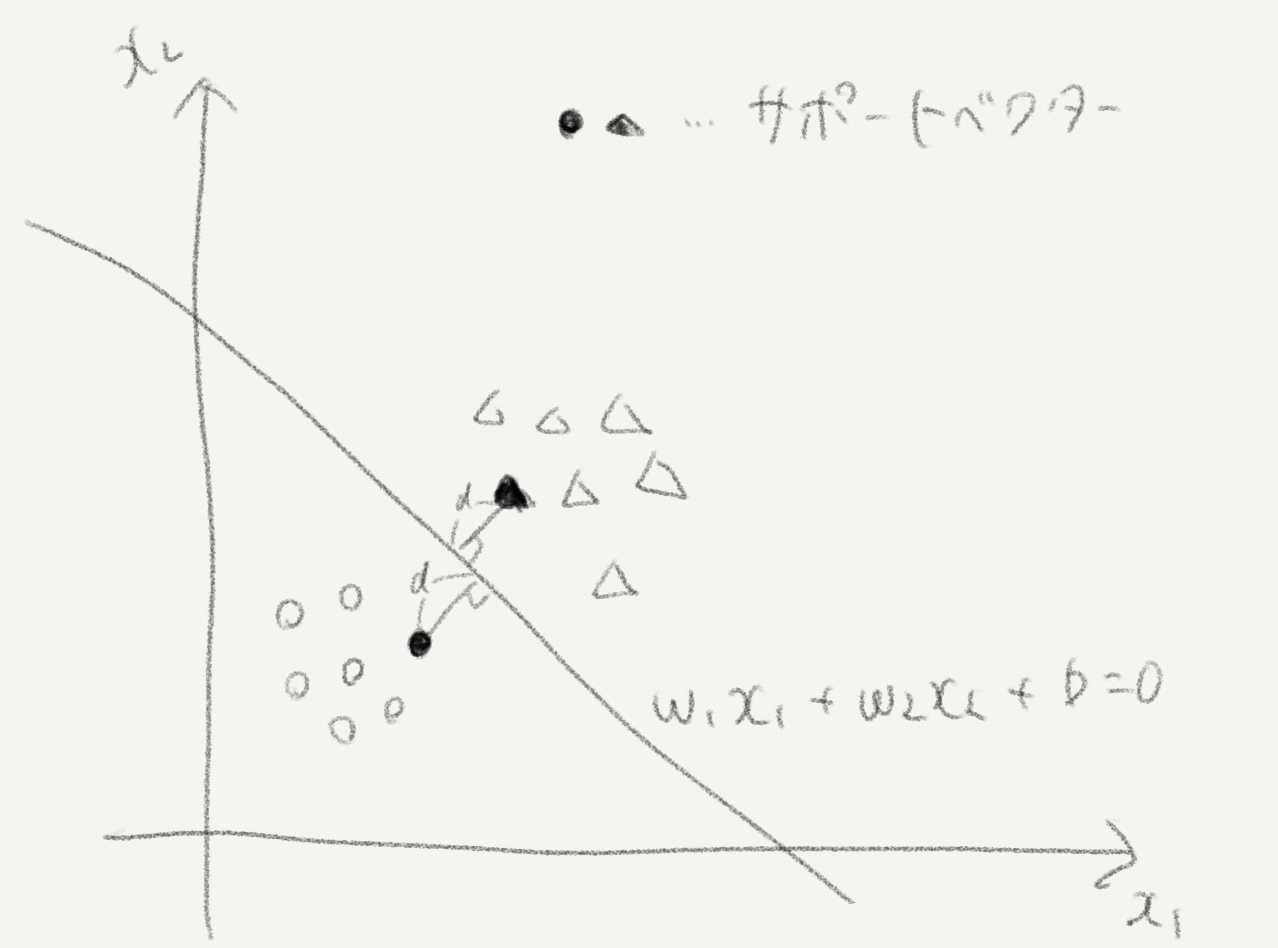 x₂
… サポートベクター
d
d
w₁x₁ + w₂x₂ + b = 0
x₁